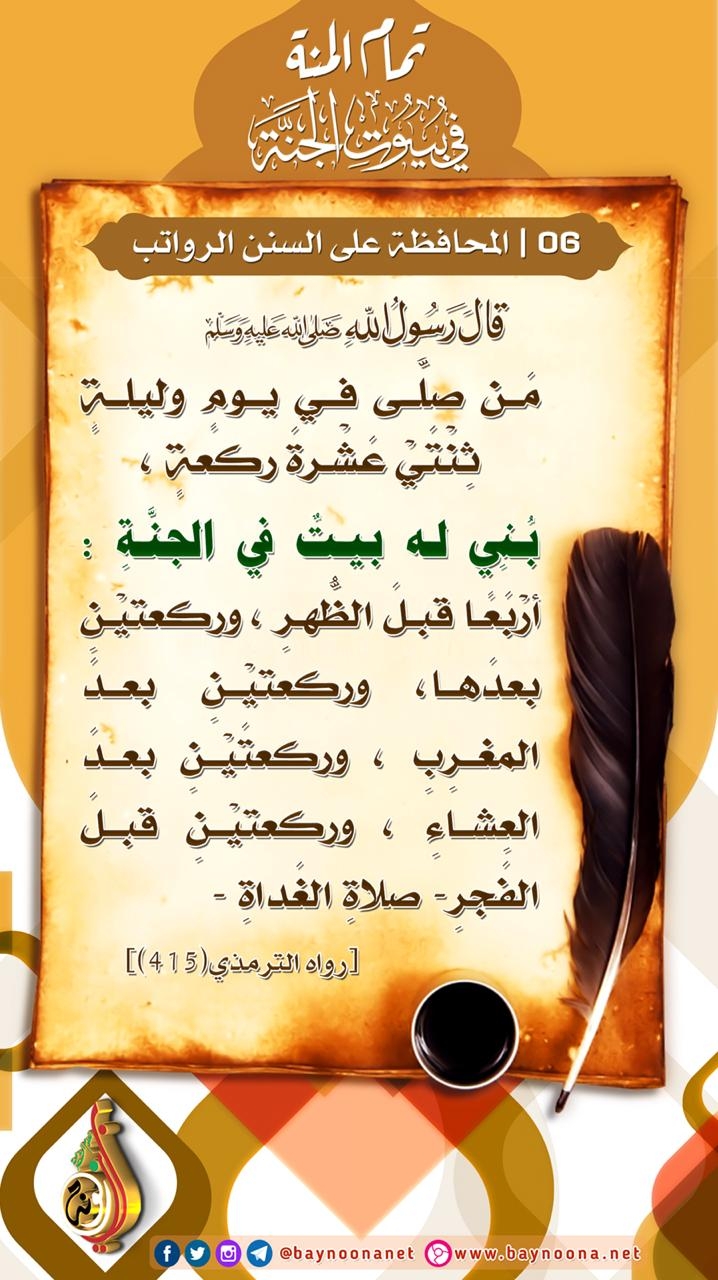 تمام المنة
في بُيُوتِ الجَنَّة
06 | المحافظة على السنن الرواتب
قَالَ رَسُولُ اللهِ صَلَّى اللهُ عَلَيْهِ وَسَلَّمَ
مَن صلَّى في يومٍ وليلةٍ
ثِنْتَيْ عَشْرةَ ركعةٍ ،
بُنِي له بيتٌ فِي الجنَّةِ :
أرْبَعًا قبلَ الظُّهرِ ، وركعتيْنِ
بعدَها، وركعتيْنِ بعدَ
المغرِبِ ، وركعتَيْنِ بعدَ
العِشاءِ ، وركعتيْنِ قبلَ
الفَجرِ- صلاةِ الغَداةِ -
[رواه الترمذي(415)]
@baynoonanet www.baynoona.net